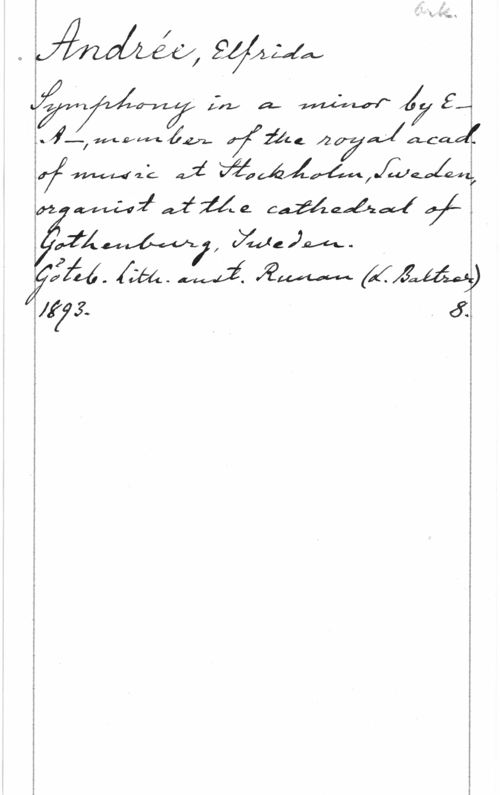 Ork.
Andrée, Elfrida
Symphony in a minor by E–
–A–, member of the royal acad.
of music at Stockholm, Sweden,
organist at the cathedral of
Gothenburg, Sweden.
Göteb. Lith. anst. Runan (L. Baltzer)
1893. 8.